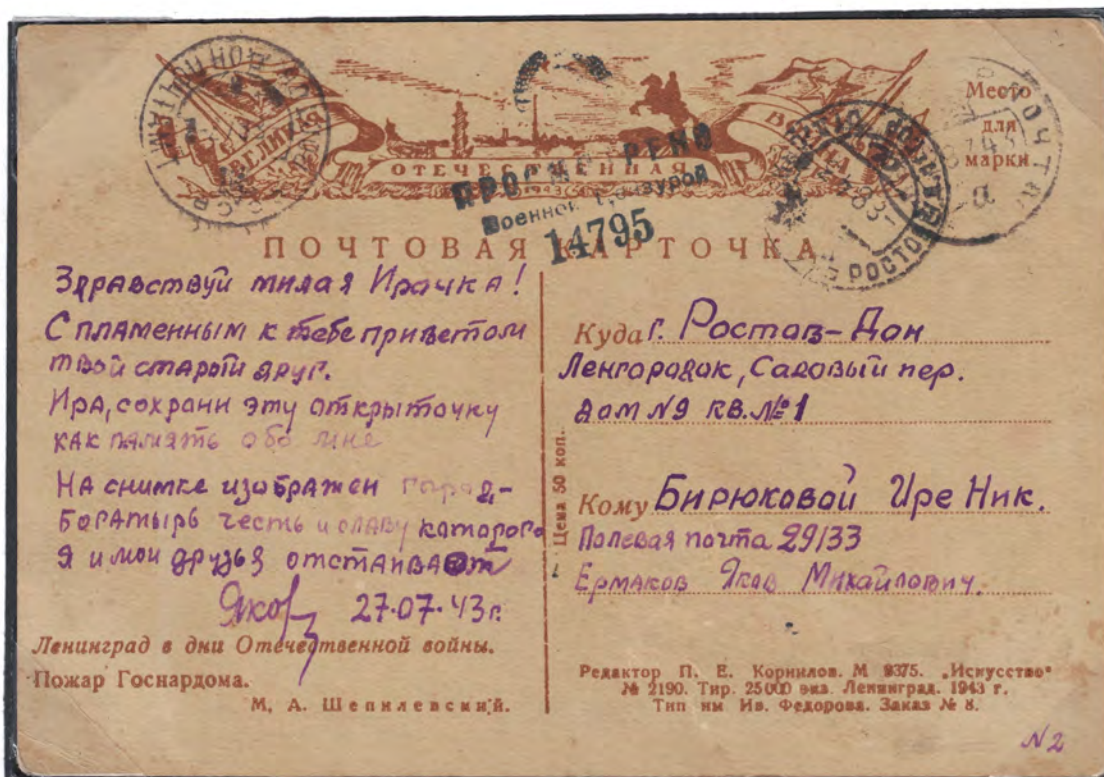 ВЕЛИКАЯ
ОТЕЧЕСТВЕННАЯ
ВОЙНА
1943
Место
для
марки
ПРОСМОТРЕНО
Военной Цензурой
14795
ПОЧТОВАЯ КАРТОЧКА
Здравствуй милая Ирочка!
С пламенным к тебе приветом
твой старый друг.
Ира, сохрани эту открыточку
как память обо мне
На снимке изображен город-
богатырь честь и славу которого
я и мои друзья отстаивают
Яков 27.07.43 г.
Ленинград в дни Отечественной войны.
Пожар Госнардома.
М. А. Шепилевский.
Цена 50 коп.
Куда г. Ростов-Дон
Ленгородок, Садовый пер.
дом № 9 кв. № 1
Кому Бирюковой Ире Ник.
Полевая почта 29133
Ермаков Яков Михайлович.
Редактор П. Е. Корнилов. М 2375. „Искусство"
№ 2190. Тир. 25000 экз. Ленинград. 1943 г.
Тип им Ив. Федорова. Заказ № 8.
N2